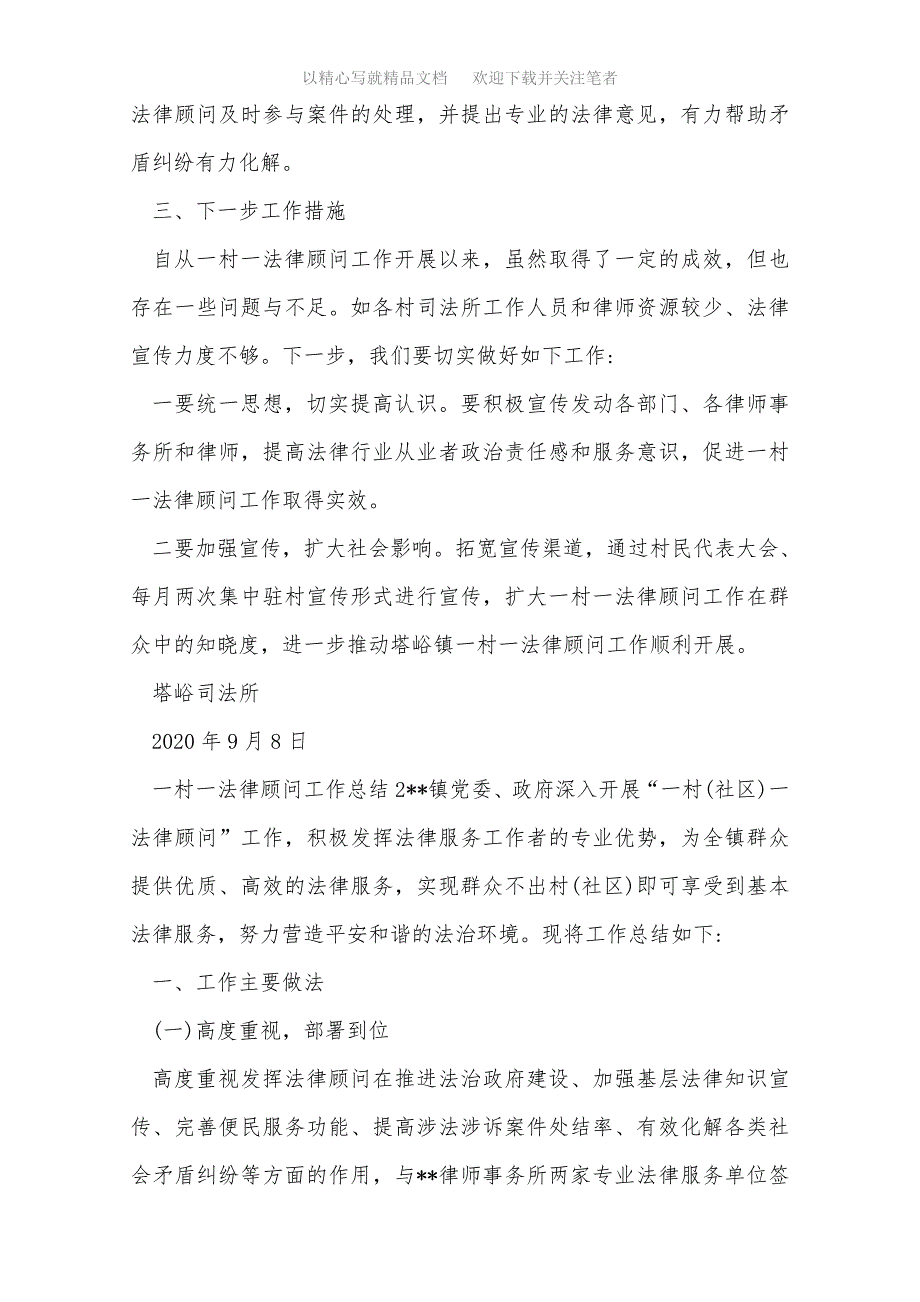 以精心写就精品文档 欢迎下载并关注笔者
法律顾问及时参与案件的处理，并提出专业的法律意见，有力帮助矛
盾纠纷有力化解。
三、下一步工作措施
自从一村一法律顾问工作开展以来，虽然取得了一定的成效，但也
存在一些问题与不足。如各村司法所工作人员和律师资源较少、法律
宣传力度不够。下一步，我们要切实做好如下工作:
一要统一思想，切实提高认识。要积极宣传发动各部门、各律师事
务所和律师，提高法律行业从业者政治责任感和服务意识，促进一村
一法律顾问工作取得实效。
二要加强宣传，扩大社会影响。拓宽宣传渠道，通过村民代表大会、
每月两次集中驻村宣传形式进行宣传，扩大一村一法律顾问工作在群
众中的知晓度，进一步推动塔峪镇一村一法律顾问工作顺利开展。
塔峪司法所
2020 年 9 月 8 日
一村一法律顾问工作总结 2**镇党委、政府深入开展“一村(社区)一
法律顾问”工作，积极发挥法律服务工作者的专业优势，为全镇群众
提供优质、高效的法律服务，实现群众不出村(社区)即可享受到基本
法律服务，努力营造平安和谐的法治环境。现将工作总结如下:
一、工作主要做法
(一)高度重视，部署到位
高度重视发挥法律顾问在推进法治政府建设、加强基层法律知识宣
传、完善便民服务功能、提高涉法涉诉案件处结率、有效化解各类社
会矛盾纠纷等方面的作用，与**律师事务所两家专业法律服务单位签